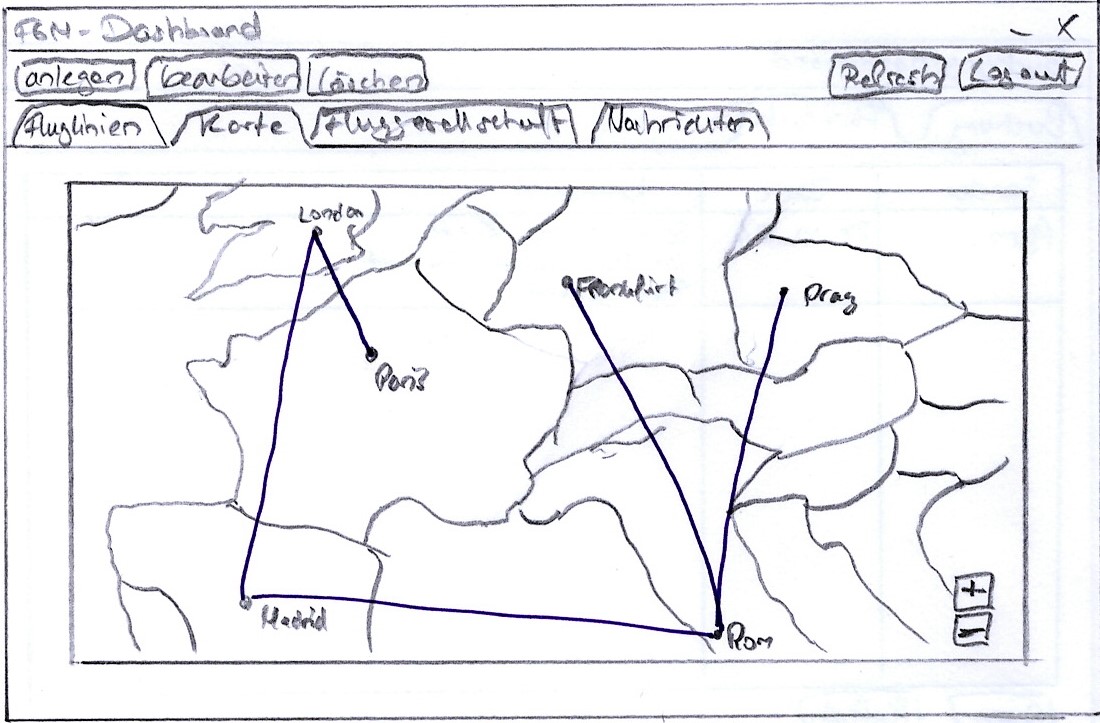 FGN - Dashboard - X
anlegen bearbeiten löschen Refresh Logout
Fluglinien Karte Fluggesellschaft Nachrichten
London
Frankfurt Prag
Paris
+
Madrid
-
Rom